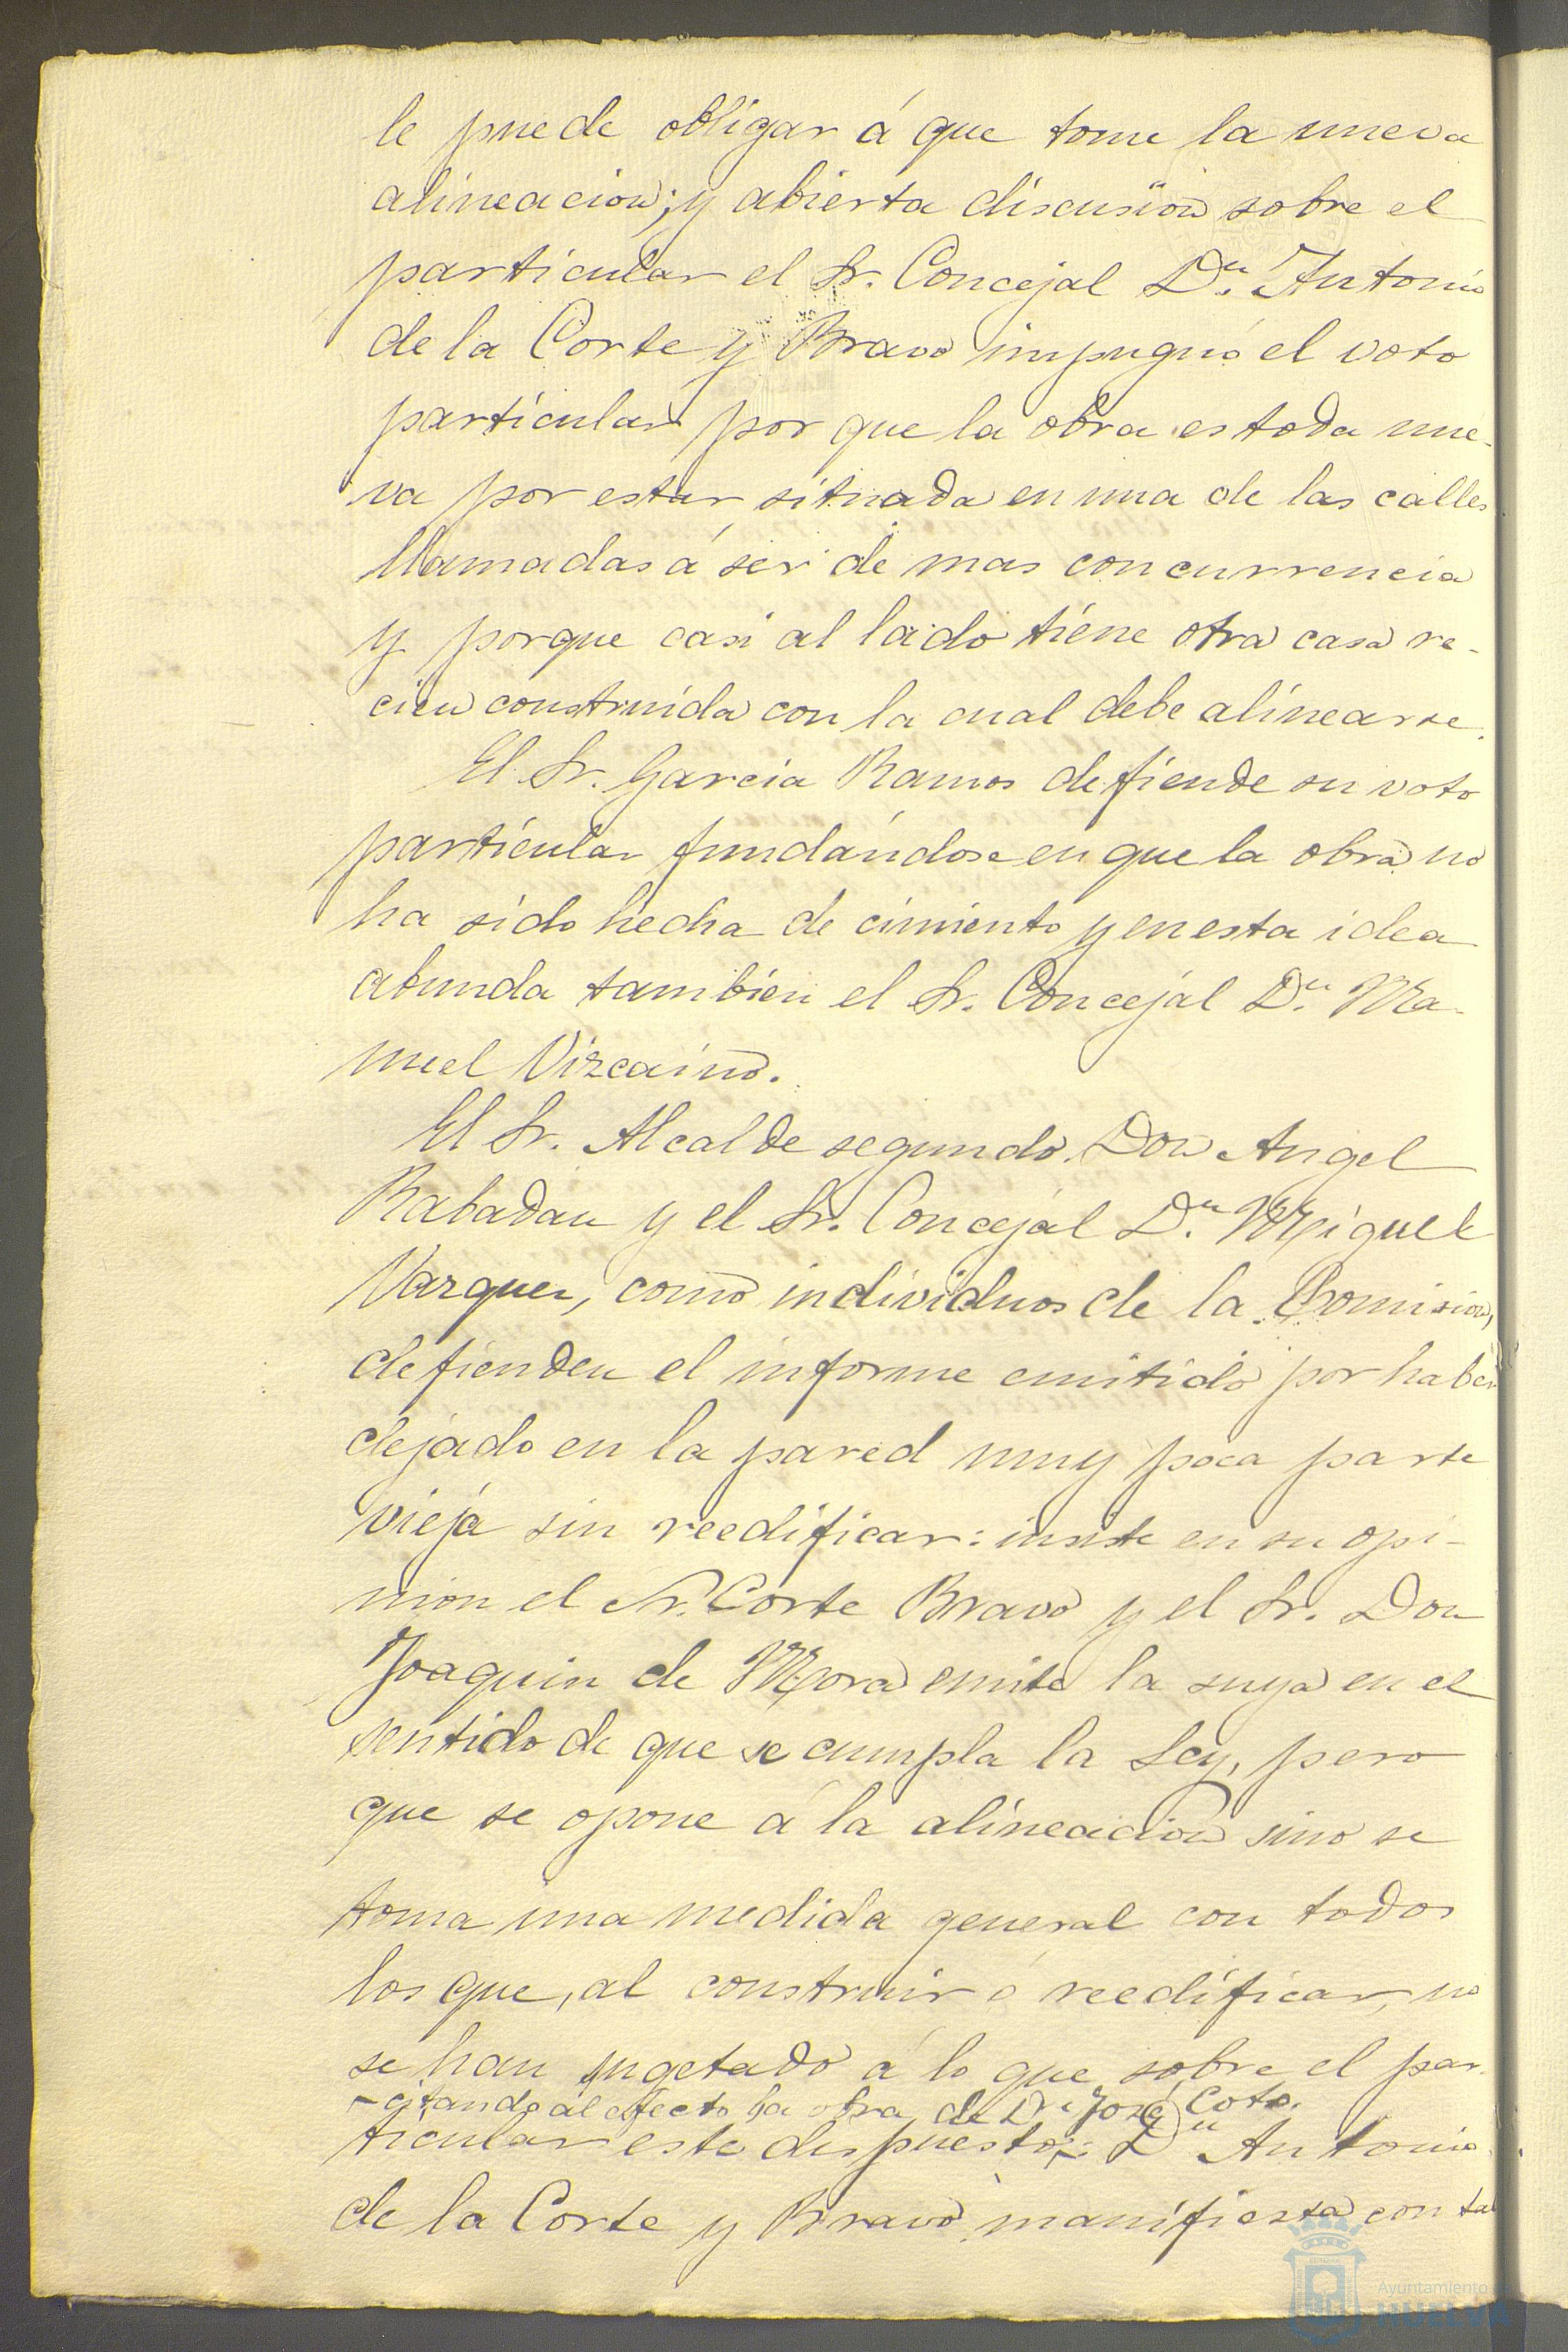 le puede obligar á que tome la nueva
alineacion; y abierta discusion sobre el
particular el Sr. Concejal Dn. Antonio
de la Corte y Bravo impugnó el voto
particular por que la obra es toda nue-
va por estar situada en una de las calles
llamadas á ser de mas concurrencia
y porque casi al lado tiene otra casa re-
cien construida con la cual debe alinearse.
El Sr. Garcia Ramos defiende su voto
particular fundándose en que la obra no
ha sido hecha de cimiento y en esta idea
abunda tambien el Sr. Concejal Dn. Ma-
nuel Vizcaino.
El Sr. Alcalde segundo Don Angel
Rabadan y el Sr. Concejal Dn. Miguel
Vazquez, como individuos de la Comision,
defienden el informe emitido por haber
dejado en la pared muy poca parte
vieja sin reedificar: insiste en su opi-
nion el Sr. Corte Bravo y el Sr. Don
Joaquin de Mora emite la suya en el
sentido de que se cumpla la Ley, pero
que se opone á la alineacion sino se
toma una medida general con todos
los que, al construir ó reedificar, no
se han sugetado á lo que sobre el par-
-citando al efecto la obra de Dn José Coto.
ticular este dispuesto: Dn Antonio
de la Corte y Bravo manifiesta con tal
Ayuntamiento
HUELVA